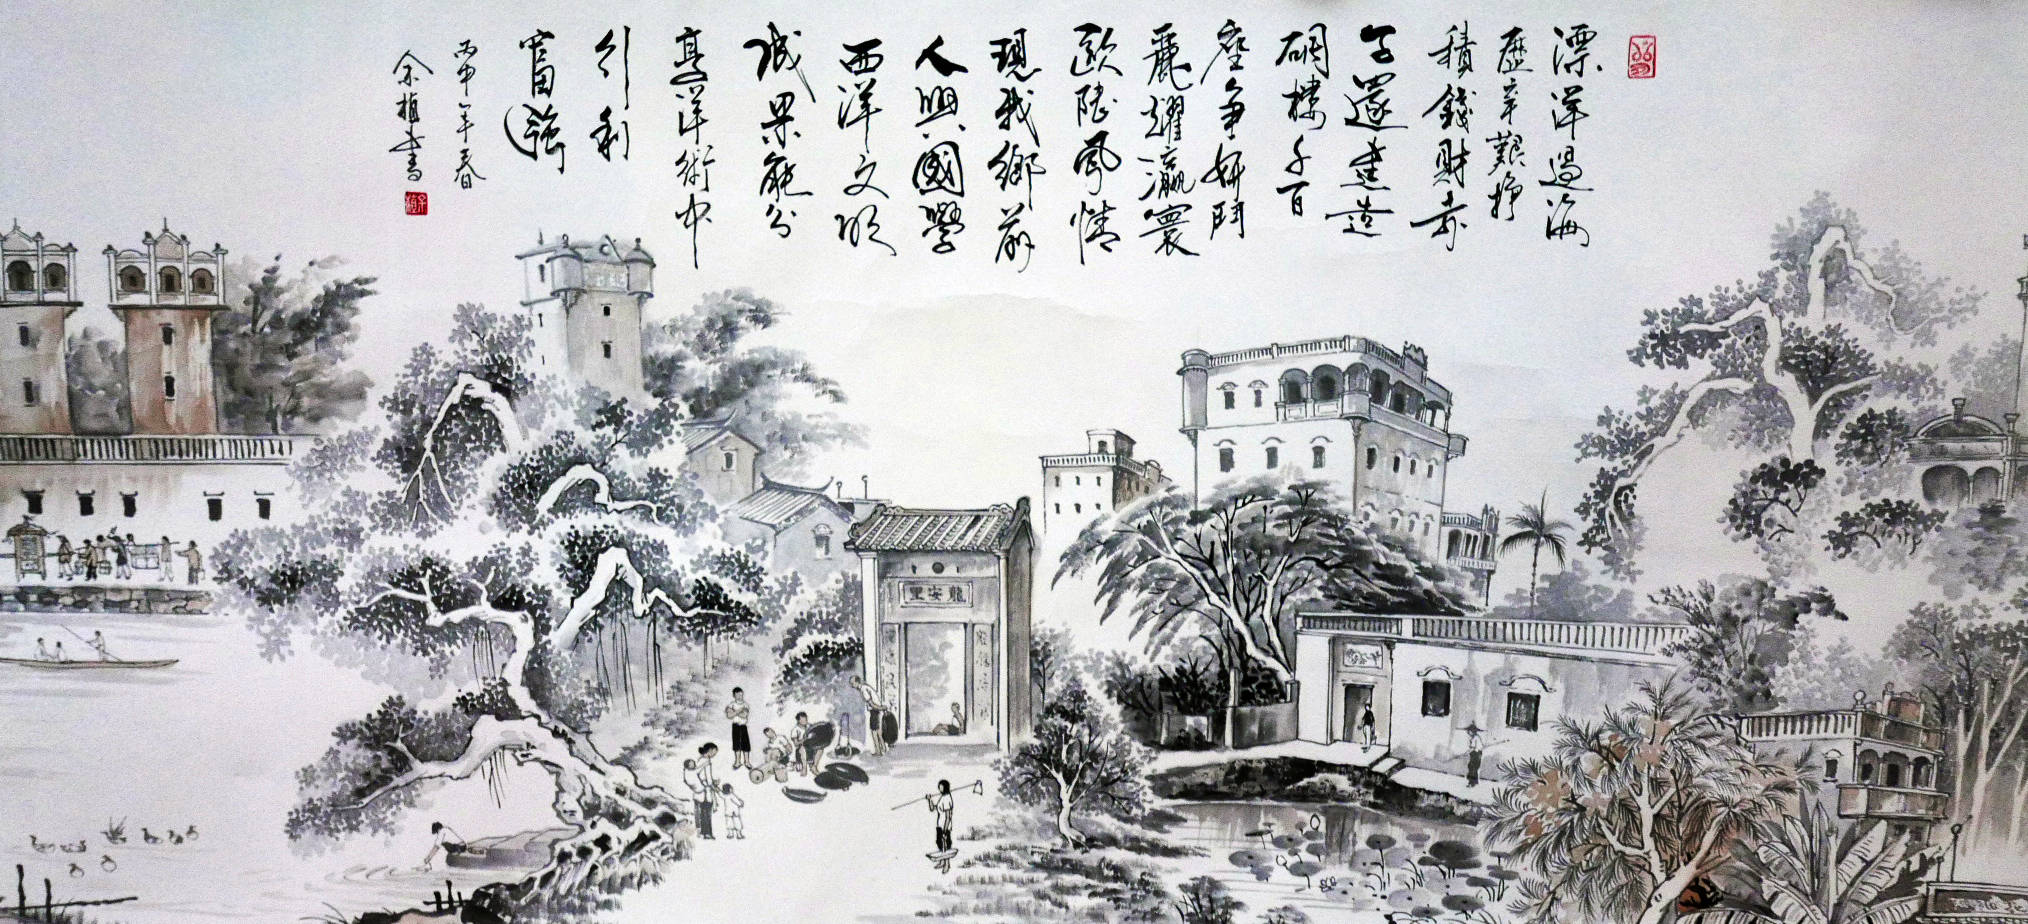 漂洋過海
歷辛艱掙
積錢財
還建造
碉樓千百
座爭妍鬥
麗耀瀛寰
歐陸風情
現我鄉前
人興國學
西洋文明
誠果能分
享洋術中
引利
富強
丙申年春
余植書
龍安里